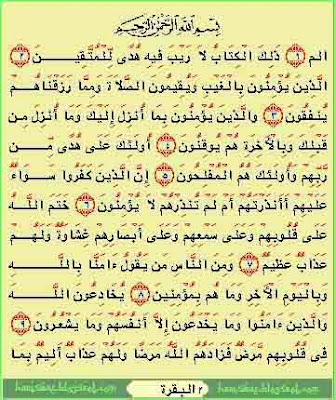 بسم الله الرحمن الرحيم
الم ١ ذَلِكَ الْكِتَابُ لَا رَيْبَ فِيهِ هُدًى لِّلْمُتَّقِينَ ٢
الَّذِينَ يُؤْمِنُونَ بِالْغَيْبِ وَيُقِيمُونَ الصَّلَاةَ وَمِمَّا رَزَقْنَاهُمْ
يُنفِقُونَ ٣ وَالَّذِينَ يُؤْمِنُونَ بِمَا أُنزِلَ إِلَيْكَ وَمَا أُنزِلَ مِن
قَبْلِكَ وَبِالْآخِرَةِ هُمْ يُوقِنُونَ ٤ أُولَئِكَ عَلَى هُدًى مِّن
رَّبِّهِمْ وَأُولَئِكَ هُمُ الْمُفْلِحُونَ ٥ إِنَّ الَّذِينَ كَفَرُوا سَوَاءٌ
عَلَيْهِمْ أَأَنذَرْتَهُمْ أَمْ لَمْ تُنذِرْهُمْ لَا يُؤْمِنُونَ ٦ خَتَمَ اللَّهُ
عَلَى قُلُوبِهِمْ وَعَلَى سَمْعِهِمْ وَعَلَى أَبْصَارِهِمْ غِشَاوَةٌ وَلَهُمْ
عَذَابٌ عَظِيمٌ ٧ وَمِنَ النَّاسِ مَن يَقُولُ ءَامَنَّا بِاللَّهِ
وَبِالْيَوْمِ الْآخِرِ وَمَا هُم بِمُؤْمِنِينَ ٨ يُخَادِعُونَ اللَّهَ
وَالَّذِينَ ءَامَنُوا وَمَا يَخْدَعُونَ إِلَّا أَنفُسَهُمْ وَمَا يَشْعُرُونَ ٩
فِى قُلُوبِهِم مَّرَضٌ فَزَادَهُمُ اللَّهُ مَرَضًا وَلَهُمْ عَذَابٌ أَلِيمٌ بِمَا
٢ البقرة